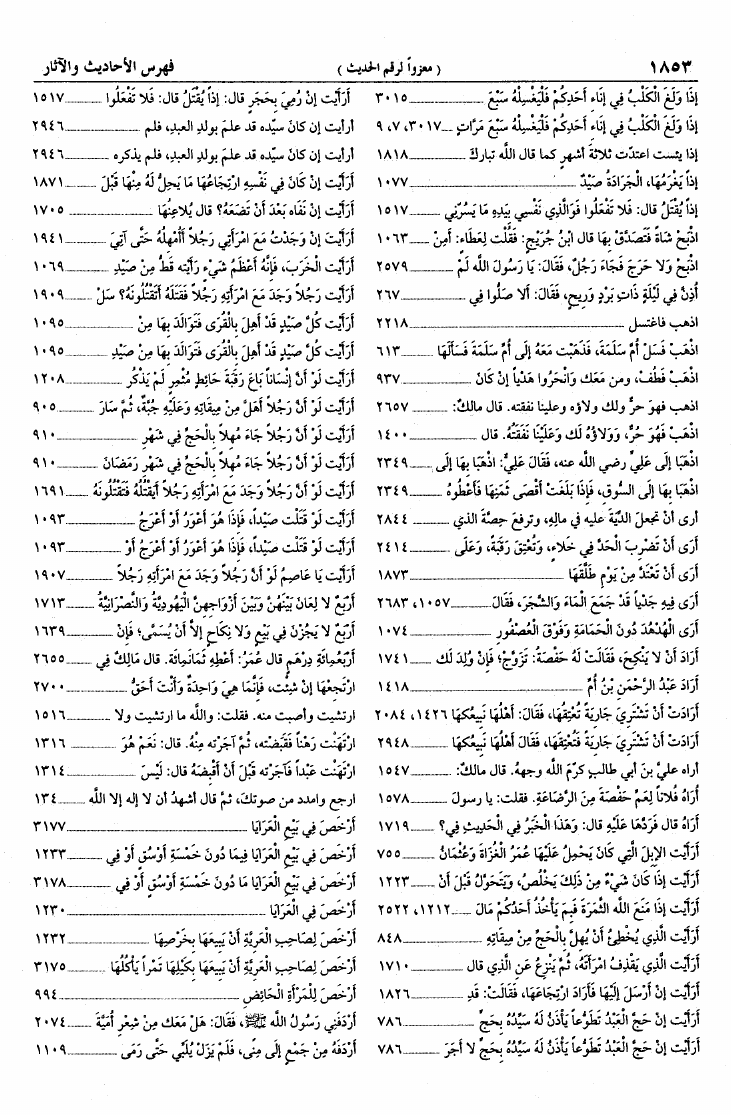 ١٨٥٣ ( معزواً لرقم الحديث ) فهرس الأحاديث والآثار
إِذَا وَلَغَ الْكَلْبُ فِي إِنَاءِ أَحَدِكُمْ فَلْيَغْسِلْهُ سَبْعَ ٣٠١٥
إِذَا وَلَغَ الْكَلْبُ فِي إِنَاءِ أَحَدِكُمْ فَلْيَغْسِلْهُ سَبْعَ مَرَّاتٍ ٣٠١٧، ٧، ٩
إذا يئست اعتدّت ثلاثةَ أشهرٍ كما قال اللَّه تبارك ١٨١٨
إِذاً يَغْرَمُهَا، الْجَرَادَةُ صَيْدٌ ١٠٧٧
إِذاً يُقْتَلُ قال: فَلا تَفْعَلُوا فَوَالَّذِي نَفْسِي بِيَدِهِ مَا يَسُرُّنِي ١٥١٧
اذْبَحْ شَاةً فَتَصَدَّقْ بِهَا قال ابْنُ جُرَيْجٍ: فَقُلْت لِعَطَاء: أَمِنْ ١٠٦٣
اذْبَحْ وَلا حَرَجَ فَجَاءَ رَجُلٌ، فَقَالَ: يَا رَسُولَ اللَّه لَمْ ٢٥٧٩
أَذَّنَ فِي لَيْلَةٍ ذَاتِ بَرْدٍ وَرِيحٍ، فَقَالَ: أَلا صَلُّوا فِي ٢٦٧
اذهب فاغتسل ٢٢١٨
اذْهَبْ فَسَلْ أُمَّ سَلَمَةَ، فَذَهَبْت مَعَهُ إِلَى أُمِّ سَلَمَةَ فَسَأَلَهَا ٦١٣
اذْهَبْ فَطُفْ، ومن مَعَك وَانْحَرُوا هَدْياً إِنْ كَانَ ٩٣٧
اذهب فهوَ حرٌّ ولك ولاؤه وعلينا نفقته. قال مالكٌ: ٢٦٥٧
اذْهَبْ فَهُوَ حُرٌّ، وَوَلاؤُهُ لَك وَعَلَيْنَا نَفَقَتُهُ. قال ١٤٠٠
اذْهَبَا إِلَى عَلِيٍّ رضي اللَّه عنه، فَقَالَ عَلِيٌّ: اذْهَبَا بِهَا إِلَى ٢٣٤٩
اذْهَبَا بِهَا إِلَى السُّوقِ، فَإِذَا بَلَغَتْ أَقْصَى ثَمَنِهَا فَأَعْطُوهُ ٢٣٤٩
أرى أن تجعلَ الدِّيَةَ عليه في مالِهِ، وترفعَ حِصَّةَ الذي ٢٨٤٤
أَرَى أَنْ تَضْرِبَ الْحَدَّ فِي خَلاءٍ، وَتُعْتِقَ رَقَبَةً، وَعَلَى ٢٤١٤
أَرَى أَنْ تَعْتَدَّ مِنْ يَوْمِ طَلَّقَهَا ١٨٧٣
أَرَى فِيهِ جَدْياً قَدْ جَمَعَ الْمَاءَ وَالشَّجَرَ، فَقَالَ ١٠٥٧، ٢٦٨٣
أَرَى الْهُدْهُدَ دُونَ الْحَمَامَةِ وَفَوْقَ الْعُصْفُورِ ١٠٧٤
أَرَادَ أَنْ لا يَنْكِحَ، فَقَالَتْ لَهُ حَفْصَةُ: تَزَوَّجْ؛ فَإِنْ وُلِدَ لَك ١٧٤١
أَرَادَ عَبْدُ الرَّحْمَنِ بْنُ أُمٍّ ١٤١٨
أَرَادَتْ أَنْ تَشْتَرِيَ جَارِيَةً تُعْتِقُهَا، فَقَالَ: أَهْلُهَا نَبِيعُكهَا ١٤٢٦، ٢٠٨٤
أَرَادَتْ أَنْ تَشْتَرِيَ جَارِيَةً فَتُعْتِقَهَا، فَقَالَ أَهْلُهَا نَبِيعُكهَا ٢٩٤٨
أراه عليُّ بنَ أبي طالبٍ كرّم اللَّه وجهه. قال مالكٌ: ١٥٤٧
أُرَاهُ فُلاناً لِعَمِّ حَفْصَةَ مِنَ الرَّضَاعَةِ. فقلت: يا رسولَ ١٥٧٨
أُرَاهُ قال فَرَدَّهَا عَلَيْهِ قال: وَهَذَا الْخَبَرُ فِي الْحَدِيثِ فِي؟ ١٧١٩
أَرَأَيْت الإِبِلَ الَّتِي كَانَ يَحْمِلُ عَلَيْهَا عُمَرُ الْغُزَاةَ وَعُثْمَانُ ٧٥٥
أَرَأَيْت إِذَا كَانَ شَيْءٌ مِنْ ذَلِكَ يَخْلُصُ، وَيَتَحَوَّلُ قَبْلَ أَنْ ١٢٢٣
أَرَأَيْت إِذَا مَنَعَ اللَّه الثَّمَرَةَ فَبِمَ يَأْخُذُ أَحَدُكُمْ مَالَ ١٢١٢، ٢٥٢٢
أَرَأَيْت الَّذِي يُخْطِئُ أَنْ يُهِلَّ بِالْحَجِّ مِنْ مِيقَاتِهِ ٨٤٨
أَرَأَيْت الَّذِي يَقْذِفُ امْرَأَتَهُ، ثُمَّ يَنْزِعُ عَنِ الَّذِي قال ١٧١٠
أَرَأَيْت إِنْ أَرْسَلَ إِلَيْهَا فَأَرَادَ ارْتِجَاعَهَا، فَقَالَتْ: قَدِ ١٨٢٦
أَرَأَيْت إِنْ حَجَّ الْعَبْدُ تَطَوُّعاً يَأْذَنُ لَهُ سَيِّدُهُ بِحَجٍّ ٧٨٦
أَرَأَيْت إِنْ حَجَّ الْعَبْدُ تَطَوُّعاً يَأْذَنُ لَهُ سَيِّدُهُ بِحَجٍّ لا أَجَرَ ٧٨٦
أَرَأَيْت إِنْ رُمِيَ بِحَجَرٍ قال: إِذاً يُقْتَلُ قال: فَلا تَفْعَلُوا ١٥١٧
أرأيت إن كانَ سيّده قد علمَ بولدِ العبدِ، فلم ٢٩٤٦
أرأيت إن كانَ سيّده قد علمَ بولدِ العبدِ، فلم يذكره ٢٩٤٦
أَرَأَيْت إِنْ كَانَ فِي نَفْسِهِ ارْتِجَاعُهَا مَا يَحِلُّ لَهُ مِنْهَا قَبْلَ ١٨٧١
أَرَأَيْت إِنْ نَفَاهُ بَعْدَ أَنْ تَضَعَهُ؟ قال يُلاعِنُهَا ١٧٠٥
أَرَأَيْتَ إِنْ وَجَدْتُ مَعَ امْرَأَتِي رَجُلاً أَأُمْهِلُهُ حَتَّى آتِيَ ١٩٤١
أَرَأَيْت الْخَرَبَ، فَإِنَّهُ أَعْظَمُ شَيْءٍ رَأَيْته قَطُّ مِنْ صَيْدِ ١٠٦٩
أَرَأَيْت رَجُلاً وَجَدَ مَعَ امْرَأَتِهِ رَجُلاً فَقَتَلَهُ أَتَقْتُلُونَهُ؟ سَلْ ١٩٠٩
أَرَأَيْت كُلَّ صَيْدٍ قَدْ أَهِلَ بِالْقُرَى فَتَوَالَدَ بِهَا مِنْ ١٠٩٥
أَرَأَيْت كُلَّ صَيْدٍ قَدْ أَهِلَ بِالْقُرَى فَتَوَالَدَ بِهَا مِنْ صَيْدٍ ١٠٩٥
أَرَأَيْت لَوْ أَنَّ إِنْسَاناً بَاعَ رَقَبَةَ حَائِطٍ مُثْمِرٍ لَمْ يَذْكُرْ ١٢٠٨
أَرَأَيْت لَوْ أَنَّ رَجُلاً أَهَلَّ مِنْ مِيقَاتِهِ وَعَلَيْهِ جُبَّةٌ، ثُمَّ سَارَ ٩٠٥
أَرَأَيْت لَوْ أَنَّ رَجُلاً جَاءَ مُهِلاً بِالْحَجِّ فِي شَهْرِ ٩١٠
أَرَأَيْت لَوْ أَنَّ رَجُلاً جَاءَ مُهِلاً بِالْحَجِّ فِي شَهْرِ رَمَضَانَ ٩١٠
أَرَأَيْت لَوْ أَنَّ رَجُلاً وَجَدَ مَعَ امْرَأَتِهِ رَجُلاً أَيَقْتُلُهُ فَتَقْتُلُونَهُ ١٦٩١
أَرَأَيْت لَوْ قَتَلْت صَيْداً، فَإِذَا هُوَ أَعْوَرُ أَوْ أَعْرَجُ ١٠٩٣
أَرَأَيْت لَوْ قَتَلْت صَيْداً، فَإِذَا هُوَ أَعْوَرُ أَوْ أَعْرَجُ أَوْ ١٠٩٣
أَرَأَيْت يا عَاصِمُ لَوْ أَنَّ رَجُلاً وَجَدَ مَعَ امْرَأَتِهِ رَجُلاً ١٩٠٧
أَرْبَعٌ لا لِعَانَ بَيْنَهُنَّ وَبَيْنَ أَزْوَاجِهِنَّ الْيَهُودِيَّةُ وَالنَّصْرَانِيَّةُ ١٧١٣
أَرْبَعٌ لا يَجُزْنَ فِي بَيْعٍ وَلا نِكَاحٍ إِلاَّ أَنْ يُسَمَّى؛ فَإِنْ ١٦٣٩
أَرْبَعُمِائَةِ دِرْهَمٍ قال عُمَرُ: أَعْطِهِ ثَمَانَمِائَةٍ. قال مَالِكٌ فِي ٢٦٥٥
ارْتَجِعْهَا إِنْ شِئْتَ، فَإِنَّمَا هِيَ وَاحِدَةٌ وَأَنْتَ أَحَقُّ ٢٧٠٠
ارتشيت وأصبت منه. فقلت: واللَّه ما ارتشيت ولا ١٥١٦
ارْتَهَنْت رَهْناً فَقَبَضْته، ثُمَّ آجَرْته مِنْهُ. قال: نَعَمْ هُوَ ١٣١٦
ارْتَهَنْت عَبْداً فَآجَرْته قَبْلَ أَنْ أَقْبِضَهُ قال: لَيْسَ ١٣١٤
ارجع وامدد من صوتكَ، ثمّ قال أشهدُ أن لا إله إلا اللَّه ١٣٤
أَرْخَصَ فِي بَيْعِ الْعَرَايَا ٣١٧٧
أَرْخَصَ فِي بَيْعِ الْعَرَايَا فِيمَا دُونَ خَمْسَةِ أَوْسُقٍ أَوْ فِي ١٢٣٣
أَرْخَصَ فِي بَيْعِ الْعَرَايَا مَا دُونَ خَمْسَةِ أَوْسُقٍ أَوْ فِي ٣١٧٨
أَرْخَصَ فِي الْعَرَايَا ١٢٣٠
أَرْخَصَ لِصَاحِبِ الْعَرِيَّةِ أَنْ يَبِيعَهَا بِخَرْصِهَا ١٢٣٢
أَرْخَصَ لِصَاحِبِ الْعَرِيَّةِ أَنْ يَبِيعَهَا بِكَيْلِهَا تَمْراً يَأْكُلُهَا ٣١٧٥
أَرْخَصَ لِلْمَرْأَةِ الْحَائِضِ ٩٩٤
أَرْدَفَنِي رَسُولُ اللَّه ﷺ، فَقَالَ: هَلْ مَعَك مِنْ شِعْرِ أُمَيَّةَ ٢٠٧٤
أَرْدَفَهُ مِنْ جَمْعٍ إِلَى مِنًى، فَلَمْ يَزَلْ يُلَبِّي حَتَّى رَمَى ١١٠٩